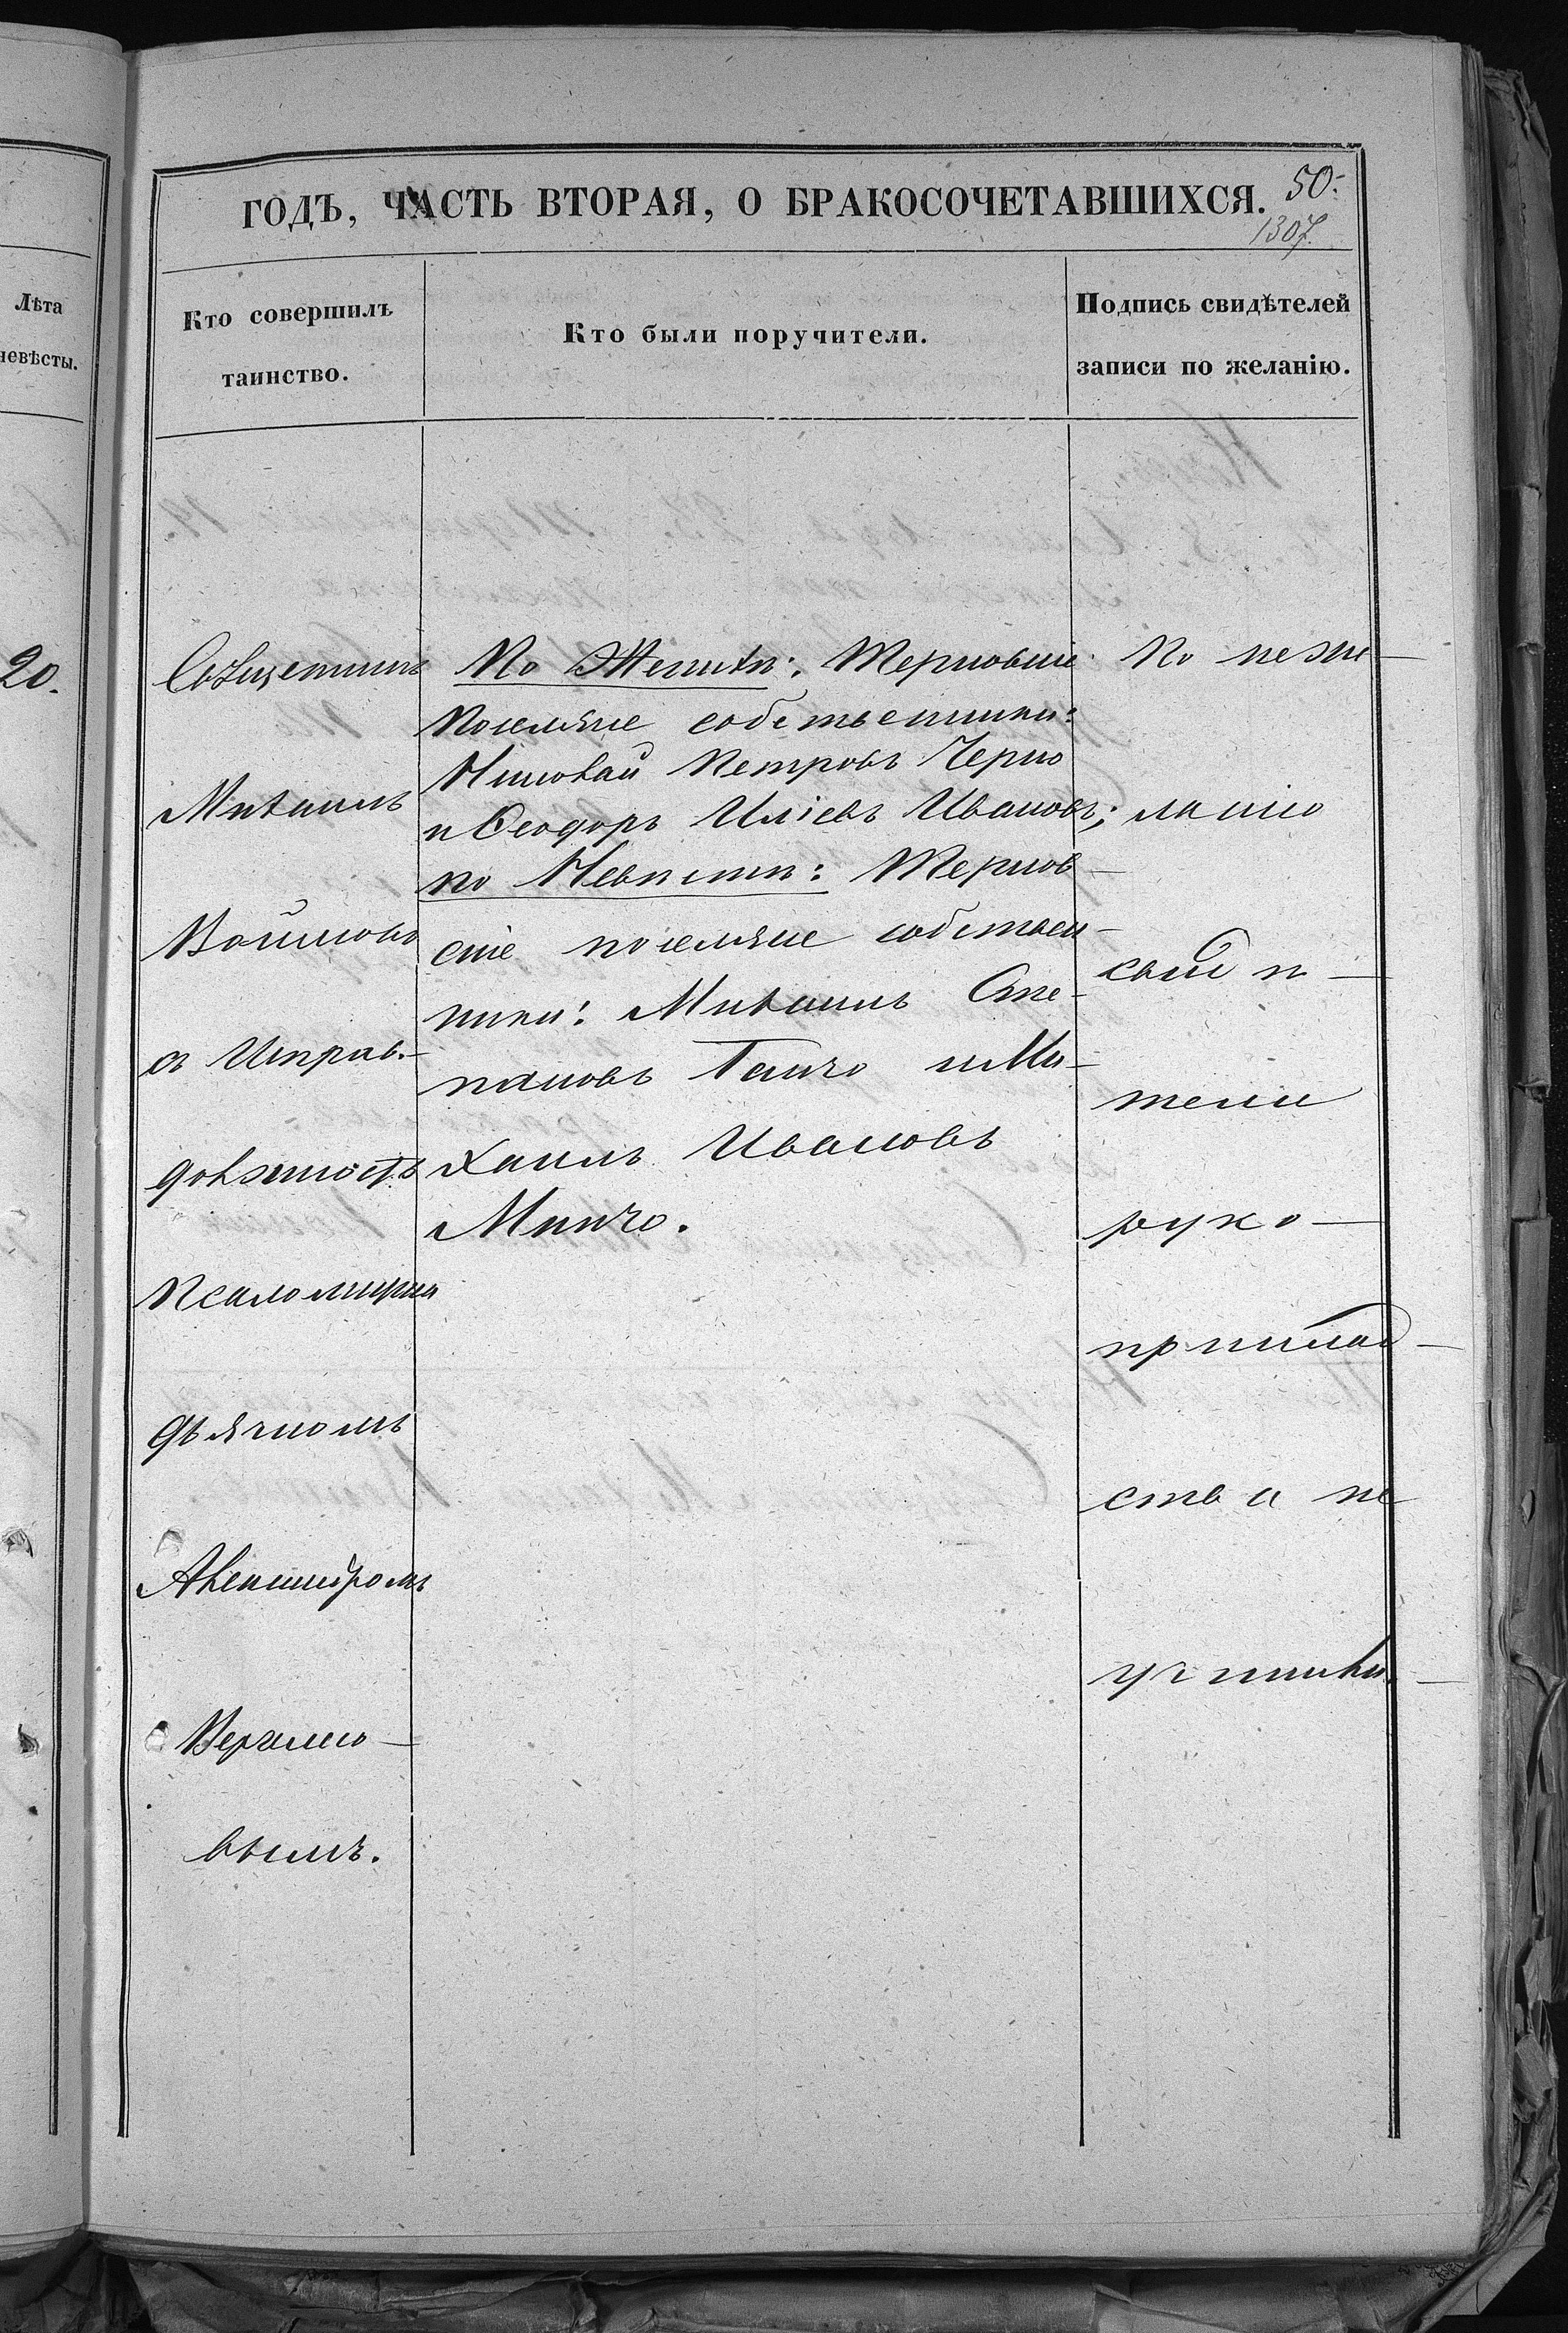 Лѣта
невѣсты.
20.
ГОДЪ, ЧАСТЬ ВТОРАЯ, О БРАКОСОЧЕТАВШИХСЯ.
50.
1307.
Кто совершилъ
таинство.
Кто были поручители.
Подпись свидѣтелей
записи по желанію.
Священникъ
Михаилъ
Войновъ
съ Исправ.
должность
Псаломщика
дьячкомъ
Александромъ
вымъ.
По Женихѣ: Терновскіе
поселяне собственники:
Николай Петровъ Черно
и Ѳеодоръ Иліевъ Ивановъ;
по Невѣстѣ: Тернов-
скіе поселяне собствен-
ники: Михаилъ Сте-
пановъ Ганчо и Ми-
хаилъ Ивановъ
Минчо.
По неже-
ланію
свидѣ-
тели
руко-
приклад-
ства не
учинили.